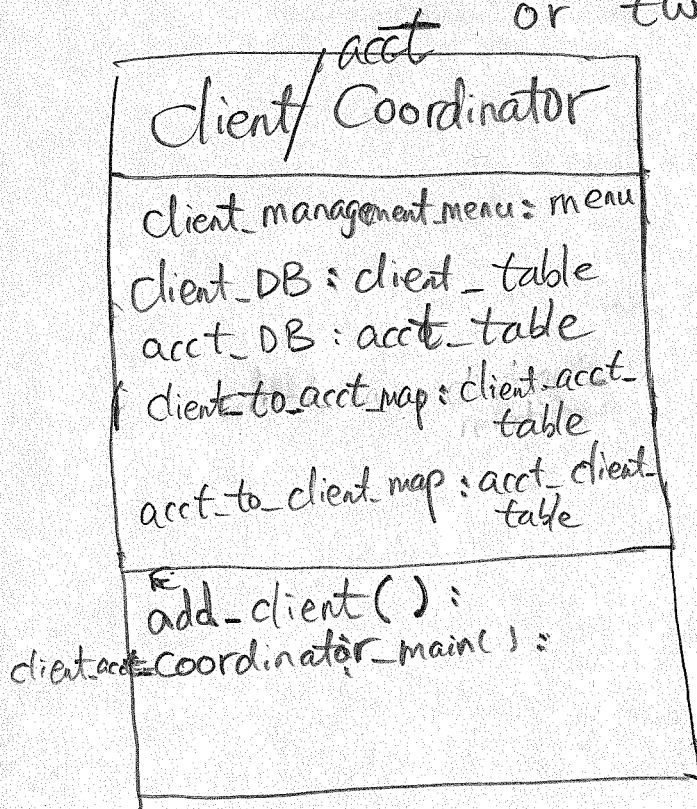 or tw
acct
Client/Coordinator
client_management_menu: menu
client_DB: client_table
acct_DB: acct_table
client_to_acct_map: client_acct_
table
acct_to_client_map: acct_client_
table
add_client():
client_acct_coordinator_main():